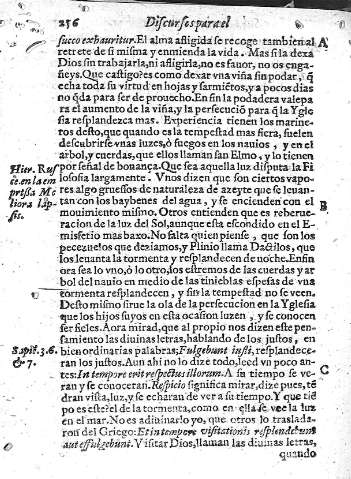 256 Discursos para el
succo exhauritur. El alma afligida se recoge tambien al
retrete de si misma y enmienda la vida. Mas si la dexa
Dios sin trabajarla, ni afligirla, no es fauor, no os enga-
ñeys. Que castigo? es como dexar vna viña sin podar, q̃
echa toda su virtud en hojas y sarmiẽtos, y a pocos dias
no q̃da para ser de prouecho. En fin la podadera vale pa
ra el aumento de la viña, y la persecució para q̃ la Ygle
sia resplandezca mas. Experiencia tienen los marine-
ros desto, que quando es la tempestad mas fiera, suelen
descubrirse vnas luzes, ò fuegos en los nauios, y en el
arbol, y cuerdas, que ellos llaman san Elmo, y lo tienen
por señal de bonança. Que sea aquella luz disputa la Fi
losofia largamente. Vnos dizen que son ciertos vapo-
res algo gruessos de naturaleza de azeyte que se leuan-
tan con los baybenes del agua, y se encienden con el
mouimiento mismo. Otros entienden que es reberue-
racion de la luz del Sol, aunque esta escondido en el E-
misferio mas baxo. No falta quien piense, que son los
pecezuelos que deziamos, y Plinio llama Dactilos, que
los leuanta la tormenta y resplandecen de noche. En fin
ora sea lo vno, ò lo otro, los estremos de las cuerdas y ar
bol del nauio en medio de las tinieblas espesas de vna
tormenta resplandecen, y sin la tempestad no se veen.
Desto mismo sirue la ola de la persecucion en la Yglesia
que los hijos suyos en esta ocasion luzen, y se conocen
ser fieles. Aora mirad, que al propio nos dizen este pen-
samiento las diuinas letras, hablando de los justos, en
bien ordinarias palabras; Fulgebunt iusti, resplandece-
ran los justos. Aun ahi no lo dize todo, leed vn poco an-
tes: In tempore erit respectus illorum. A su tiempo se ve-
ran y se conoceran. Respicio significa mirar, dize pues, tẽ
dran vista, luz, y se echaran de ver a su tiempo. Y que tiẽ
po es este? el de la tormenta, como en ella se vee la luz
en el mar. No es adiuinarlo yo, que otros lo traslada-
ron del Griego: Et in tempore visitationis resplendebunt
aut effulgebunt. Visitar Dios, llaman las diuinas letras,
quando
A
B
C
Hier. Rus
en la em
presa Me
liora lap-
sis.
Sapiẽ. 3. 6.
& 7.